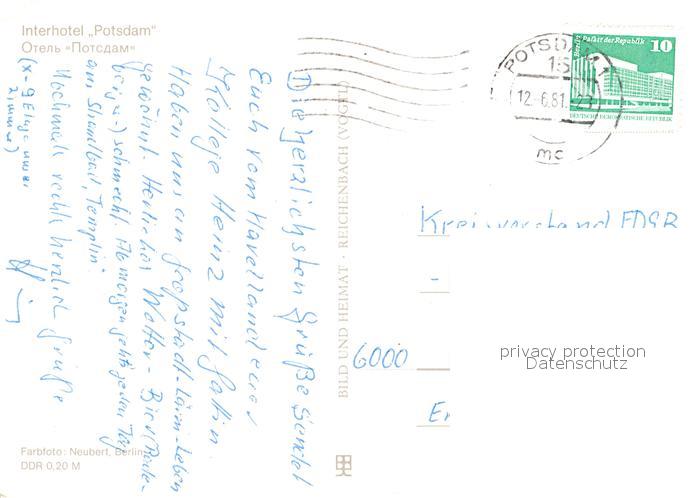 Interhotel „Potsdam"
Отель «Потсдам»
Die herzlichsten Grüße sendet
Euch vom Havelland euer
Kollege Heinz mit Gattin.
Haben uns an Großstadt-Lärm-Leben
gewöhnt. Herrliches Wetter - Bier
schmeckt. Ab morgen geht's jeden Tag
am Strandbad „Templin"
Nochmals recht herzlich Grüße
BILD UND HEIMAT · REICHENBACH (VOGTL)
Farbfoto: Neubert, Berlin
DDR 0,20 M
POTSDAM 1
15
12.-6.81
mc
Berlin, Palast der Republik
10
DEUTSCHE DEMOKRATISCHE REPUBLIK
Kreisvorstand FDGB
-
6000
Er
privacy protection
Datenschutz